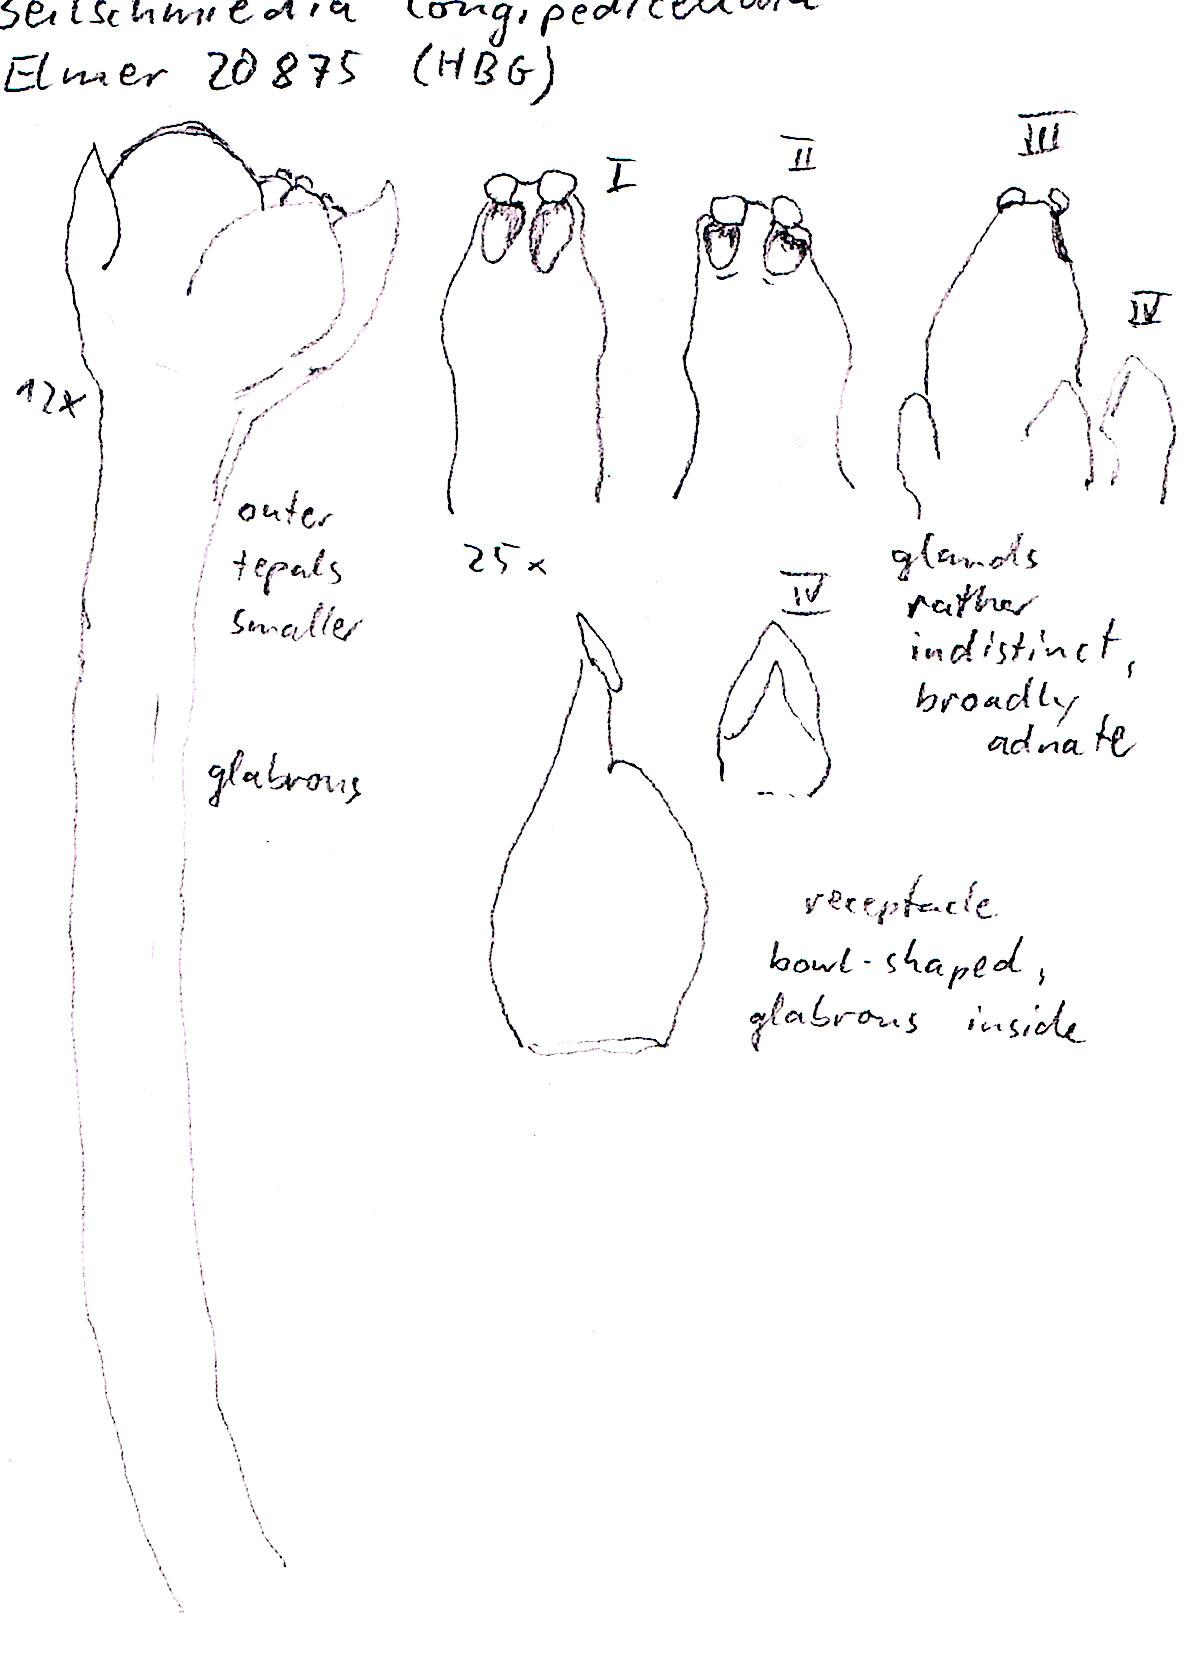 Beilschmiedia longipedicellata
Elmer 20875 (HBG)
I
II
III
IV
12x
outer
tepals
smaller
25x
glands
rather
indistinct,
broadly
adnate
IV
glabrous
receptacle
bowl-shaped,
glabrous inside